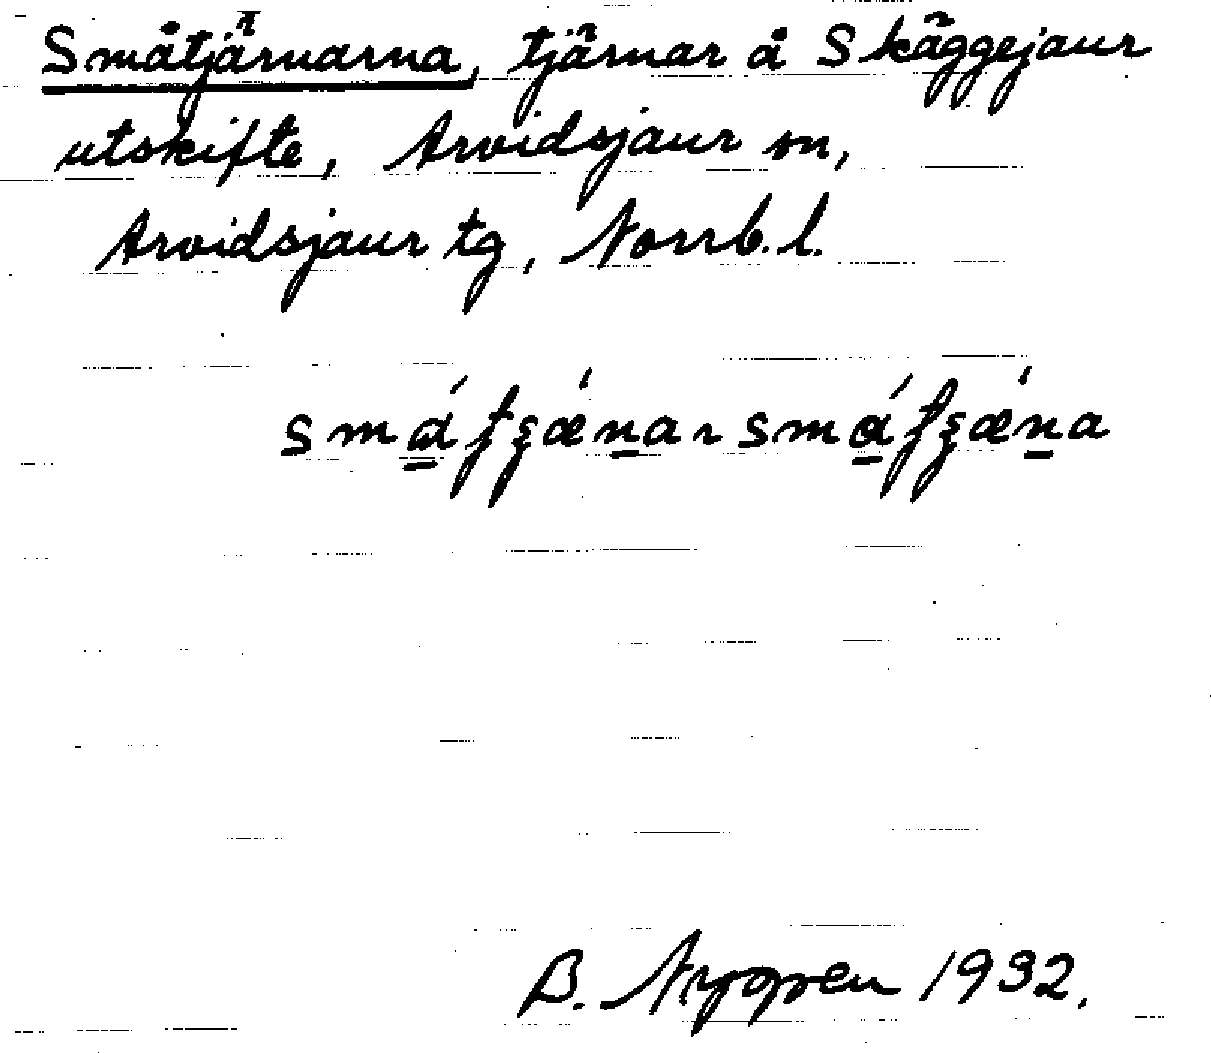 Småtjärnarna, tjärnar å Skäggejaur
utskifte, Arvidsjaur sn,
Arvidsjaur tg, Norrb. l.
B. Nygren 1932.